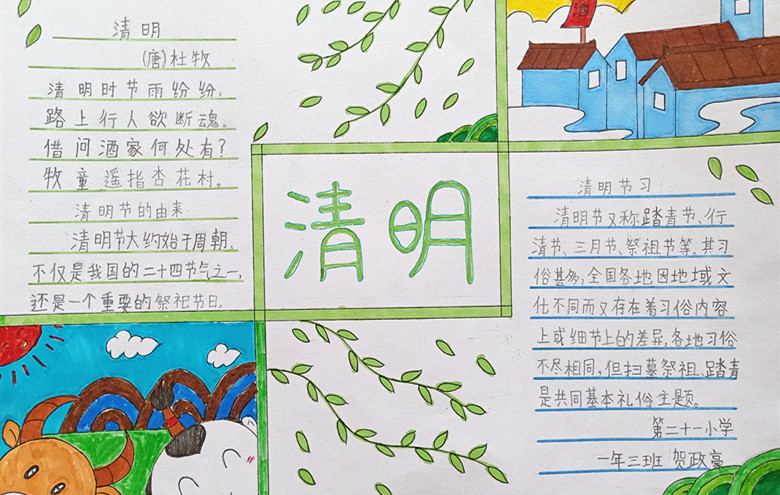 清明
(唐)杜牧
清明时节雨纷纷,
路上行人欲断魂。
借问酒家何处有?
牧童遥指杏花村。
清明节的由来
清明节大约始于周朝、
不仅是我国的二十四节气之一,
还是一个重要的祭祀节日。
清明
酒
清明节习
清明节又称踏青节、行
清节、三月节、祭祖节等。其习
俗甚多,全国各地因地域文
化不同而又存在着习俗内容
上或细节上的差异,各地习俗
不尽相同,但扫墓祭祖、踏青
是共同基本礼俗主题。
第二十一小学
一年三班 贺政豪